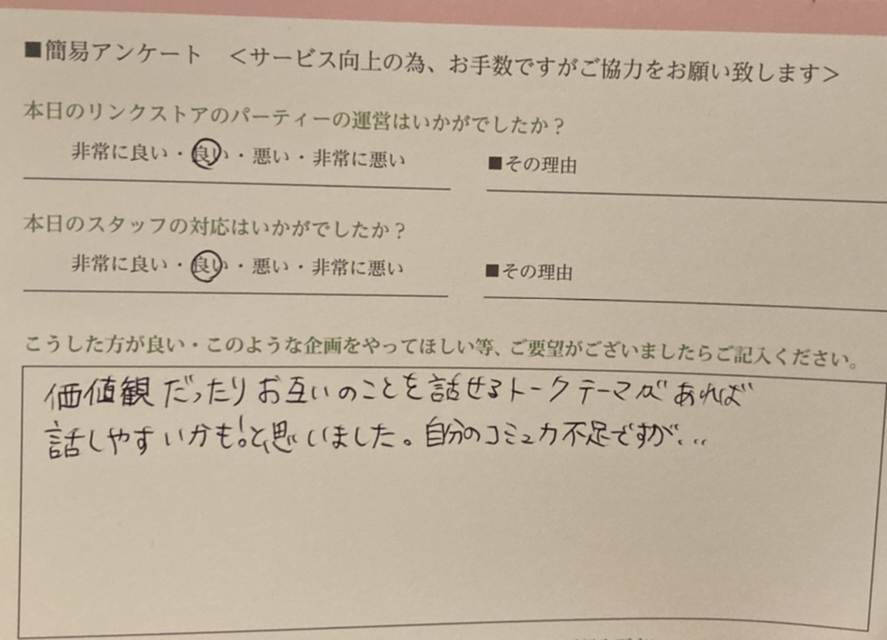 ■簡易アンケート ＜サービス向上の為、お手数ですがご協力をお願い致します＞
本日のリンクストアのパーティーの運営はいかがでしたか？
非常に良い・良い・悪い・非常に悪い ■その理由
本日のスタッフの対応はいかがでしたか？
非常に良い・良い・悪い・非常に悪い ■その理由
こうした方が良い・このような企画をやってほしい等、ご要望がございましたらご記入ください。
価値観だったりお互いのことを話せるトークテーマがあれば
話しやすいかも！と思いました。自分のコミュ力不足ですが...